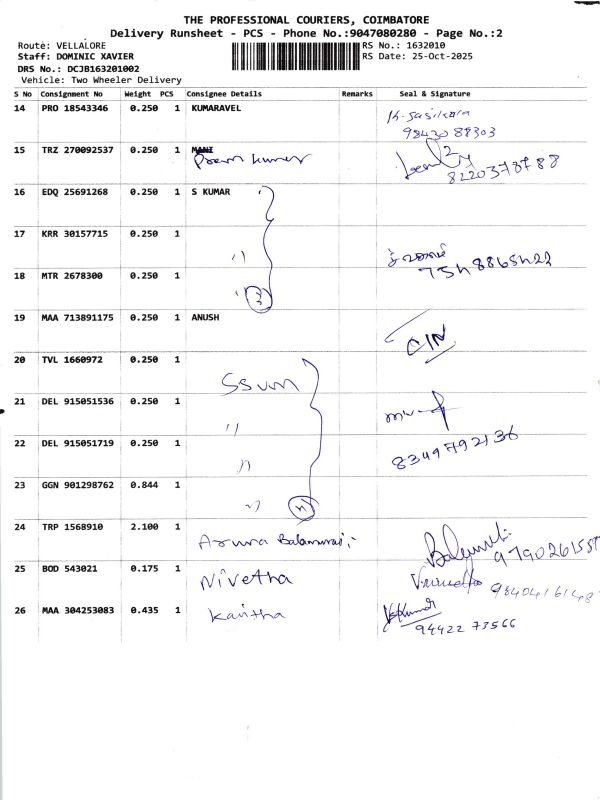 THE PROFESSIONAL COURIERS, COIMBATORE
Delivery Runsheet - PCS - Phone No.:9047080280 - Page No.:2
Route: VELLALORE
RS No.: 1632010
Staff: DOMINIC XAVIER
RS Date: 25-Oct-2025
DRS No.: DCJB163201002
Vehicle: Two Wheeler Delivery
S No Consignment No Weight PCS Consignee Details Remarks Seal & Signature
14 PRO 18543346 0.250 1 KUMARAVEL K. Sasikala
9843088303
15 TRZ 270092537 0.250 1 MANI
Prem Kumar
8220378788
16 EDQ 25691268 0.250 1 S KUMAR
17 KRR 30157715 0.250 1 "
18 MTR 2678300 0.250 1 " 3
19 MAA 713891175 0.250 1 ANUSH
20 TVL 1660972 0.250 1
SSVM
21 DEL 915051536 0.250 1 "
22 DEL 915051719 0.250 1 "
8349792136
23 GGN 901298762 0.844 1 "
24 TRP 1568910 2.100 1
25 BOD 543021 0.175 1 Nivetha
26 MAA 304253083 0.435 1 Kavitha
94422 73566